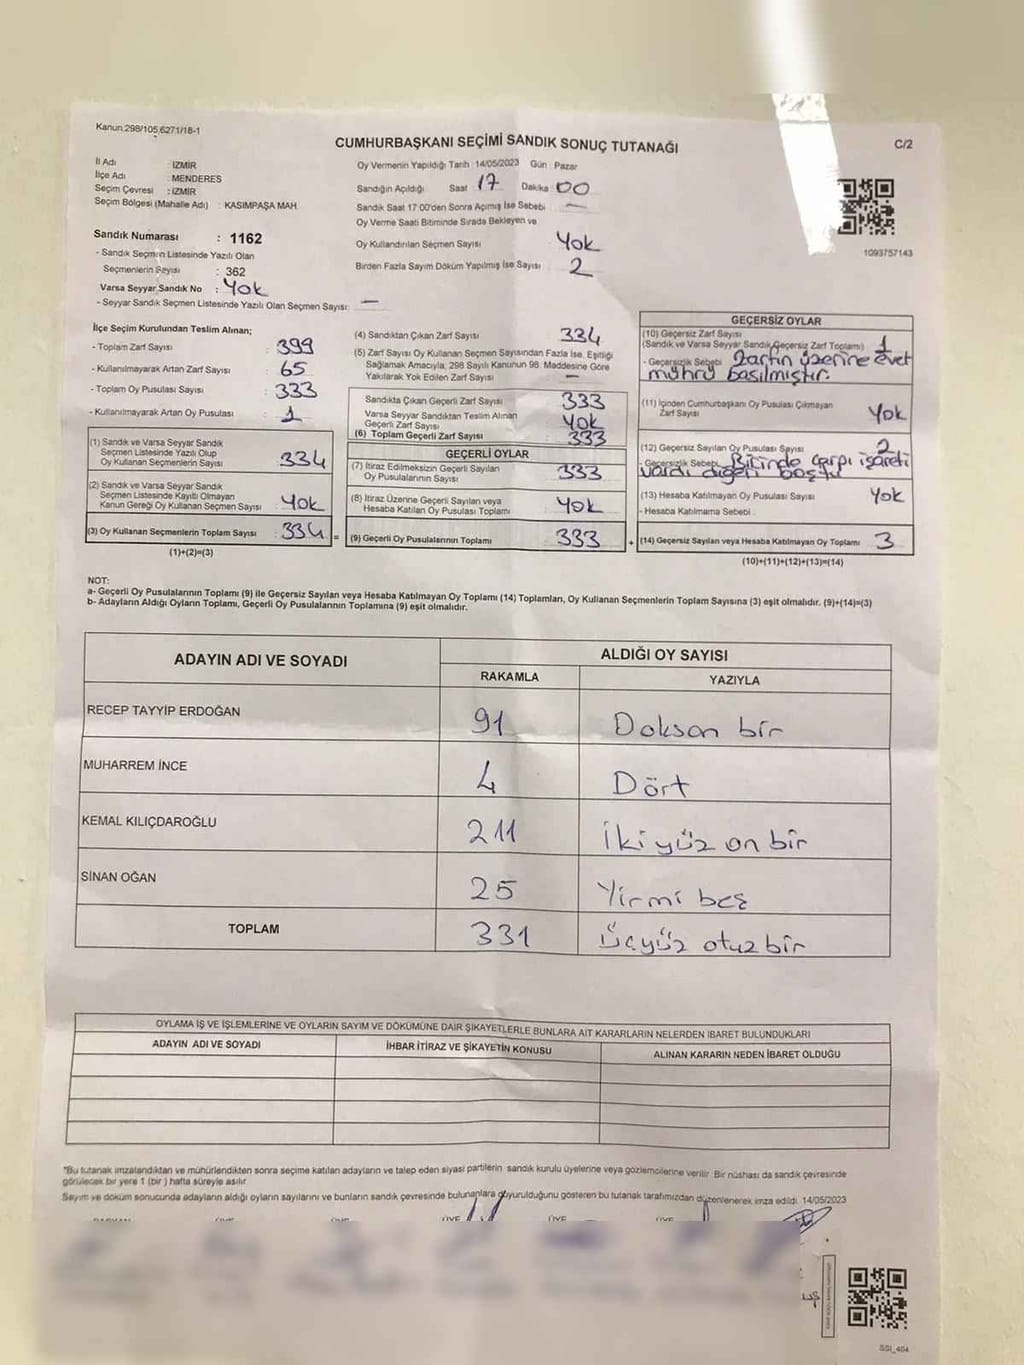 Kanun:298/105,6271/18-1
CUMHURBAŞKANI SEÇİMİ SANDIK SONUÇ TUTANAĞI
C/2
İl Adı : İZMİR
İlçe Adı : MENDERES
Seçim Çevresi : İZMİR
Seçim Bölgesi (Mahalle Adı) : KASIMPAŞA MAH.
Sandık Numarası : 1162
- Sandık Seçmen Listesinde Yazılı Olan
Seçmenlerin Sayısı : 362
Varsa Seyyar Sandık No : Yok
- Seyyar Sandık Seçmen Listesinde Yazılı Olan Seçmen Sayısı: —
Oy Vermenin Yapıldığı Tarih 14/05/2023 Gün Pazar
Sandığın Açıldığı Saat 17 Dakika 00
Sandık Saat 17:00'den Sonra Açımış İse Sebebi —
Oy Verme Saati Bitiminde Sırada Bekleyen ve
Oy Kullandırılan Seçmen Sayısı Yok
Birden Fazla Sayım Döküm Yapılmış İse Sayısı 2
1093757143
İlçe Seçim Kurulundan Teslim Alınan;
- Toplam Zarf Sayısı : 399
- Kullanılmayarak Artan Zarf Sayısı : 65
- Toplam Oy Pusulası Sayısı : 333
- Kullanılmayarak Artan Oy Pusulası : 1
(1) Sandık ve Varsa Seyyar Sandık
Seçmen Listesinde Yazılı Olup
Oy Kullanan Seçmenlerin Sayısı : 334
(2) Sandık ve Varsa Seyyar Sandık
Seçmen Listesinde Kayıtlı Olmayan
Kanun Gereği Oy Kullanan Seçmen Sayısı : Yok
(3) Oy Kullanan Seçmenlerin Toplam Sayısı : 334
(1)+(2)=(3)
(4) Sandıktan Çıkan Zarf Sayısı 334
(5) Zarf Sayısı Oy Kullanan Seçmen Sayısından Fazla İse, Eşitliği
Sağlamak Amacıyla, 298 Sayılı Kanunun 98. Maddesine Göre
Yakılarak Yok Edilen Zarf Sayısı —
Sandıkta Çıkan Geçerli Zarf Sayısı 333
Varsa Seyyar Sandıktan Teslim Alınan
Geçerli Zarf Sayısı Yok
(6) Toplam Geçerli Zarf Sayısı 333
GEÇERLİ OYLAR
(7) İtiraz Edilmeksizin Geçerli Sayılan
Oy Pusulalarının Sayısı 333
(8) İtiraz Üzerine Geçerli Sayılan veya
Hesaba Katılan Oy Pusulası Toplamı Yok
= (9) Geçerli Oy Pusulalarının Toplamı 333
GEÇERSİZ OYLAR
(10) Geçersiz Zarf Sayısı
(Sandık ve Varsa Seyyar Sandık Geçersiz Zarf Toplamı) 1
- Geçersizlik Sebebi Zarfın üzerine evet
mührü basılmıştır.
(11) İçinden Cumhurbaşkanı Oy Pusulası Çıkmayan
Zarf Sayısı Yok
(12) Geçersiz Sayılan Oy Pusulası Sayısı 2
- Geçersizlik Sebebi Birinde çarpı işareti
vardı diğeri boştu
(13) Hesaba Katılmayan Oy Pusulası Sayısı Yok
- Hesaba Katılmama Sebebi
+ (14) Geçersiz Sayılan veya Hesaba Katılmayan Oy Toplamı 3
(10)+(11)+(12)+(13)=(14)
NOT:
a- Geçerli Oy Pusulalarının Toplamı (9) ile Geçersiz Sayılan veya Hesaba Katılmayan Oy Toplamı (14) Toplamları, Oy Kullanan Seçmenlerin Toplam Sayısına (3) eşit olmalıdır. (9)+(14)=(3)
b- Adayların Aldığı Oyların Toplamı, Geçerli Oy Pusulalarının Toplamına (9) eşit olmalıdır.
ADAYIN ADI VE SOYADI
ALDIĞI OY SAYISI
RAKAMLA YAZIYLA
RECEP TAYYİP ERDOĞAN 91 Doksan bir
MUHARREM İNCE 4 Dört
KEMAL KILIÇDAROĞLU 211 İki yüz on bir
SİNAN OĞAN 25 Yirmi beş
TOPLAM 331 Üçyüz otuz bir
OYLAMA İŞ VE İŞLEMLERİNE VE OYLARIN SAYIM VE DÖKÜMÜNE DAİR ŞİKAYETLERLE BUNLARA AİT KARARLARIN NELERDEN İBARET BULUNDUKLARI
ADAYIN ADI VE SOYADI İHBAR İTİRAZ VE ŞİKAYETİN KONUSU ALINAN KARARIN NEDEN İBARET OLDUĞU
*Bu tutanak imzalandıktan ve mühürlendikten sonra seçime katılan adayların ve talep eden siyasi partilerin sandık kurulu üyelerine veya gözlemcilerine verilir. Bir nüshası da sandık çevresinde
görülecek bir yere 1 (bir) hafta süreyle asılır.
Sayım ve döküm sonucunda adayların aldığı oyların sayılarını ve bunların sandık çevresinde bulunanlara duyurulduğunu gösteren bu tutanak tarafımızdan düzenlenerek imza edildi. 14/05/2023
SSI_404